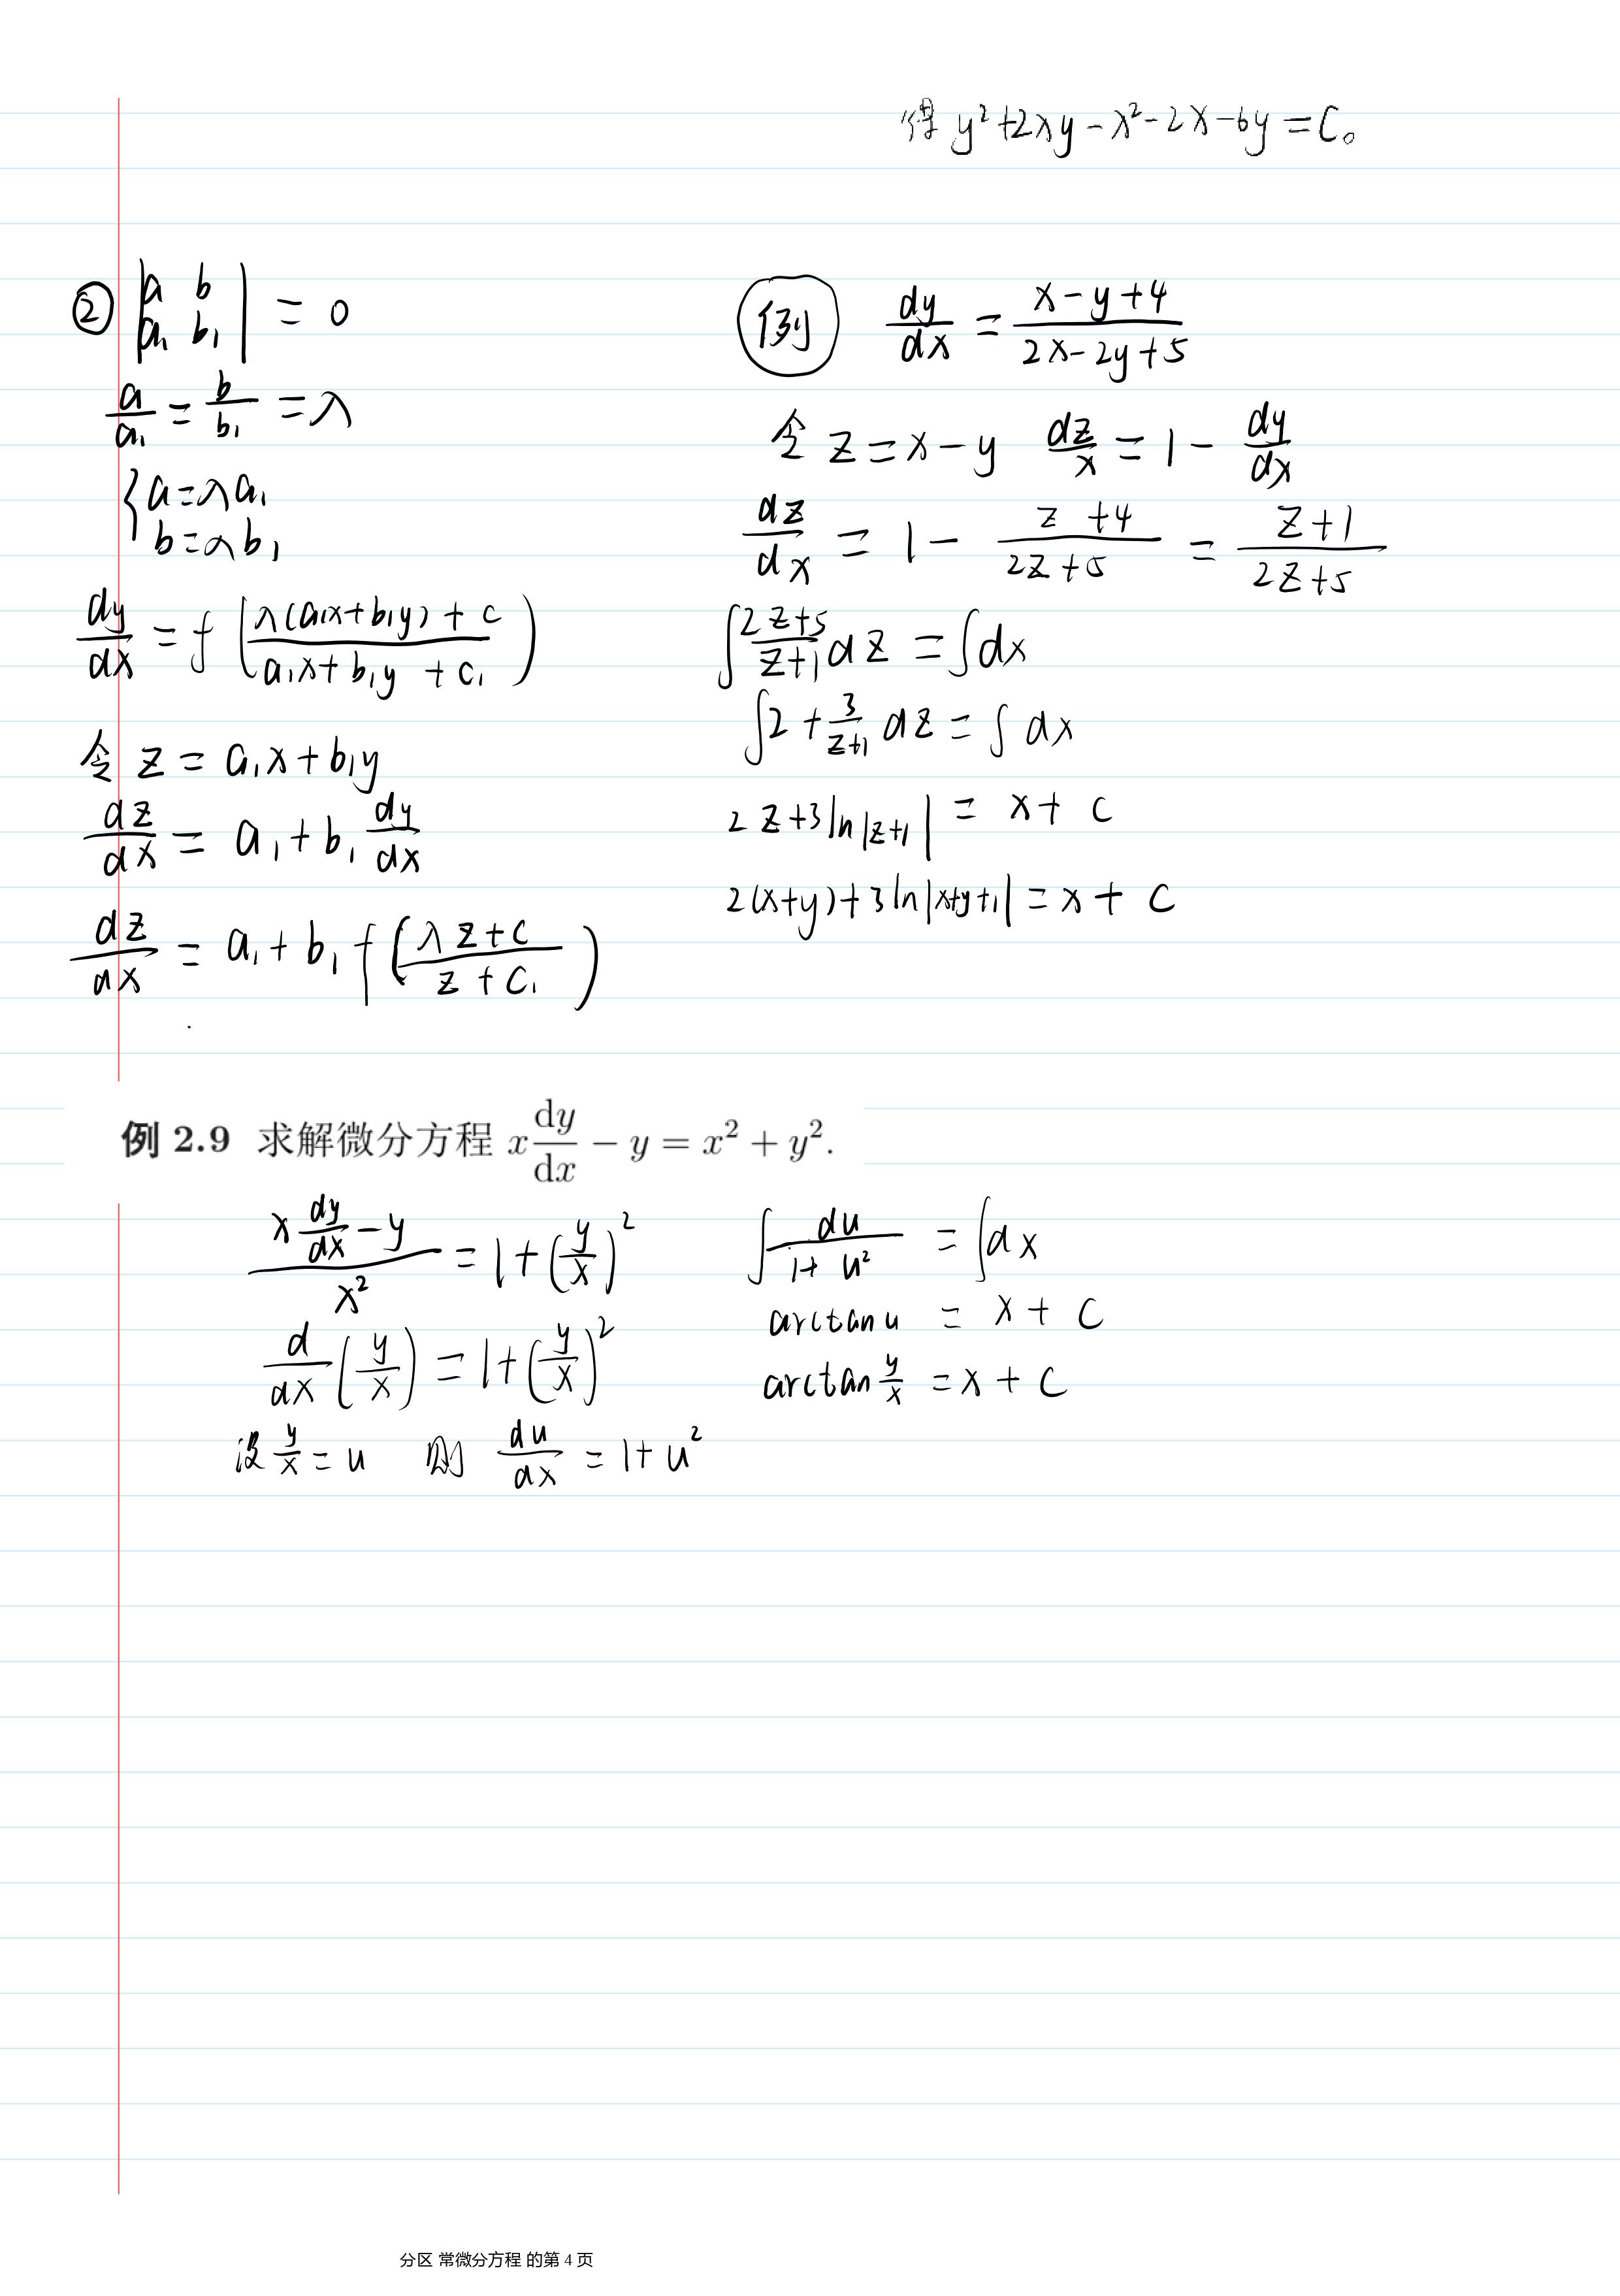 得 y²+2xy-x²-2x-6y=C。
② |a b; a₁ b₁| = 0
a/a₁ = b/b₁ = λ
{a=λa₁
b=λb₁
dy/dx = f((λ(a₁x+b₁y)+c)/(a₁x+b₁y+c₁))
令 z = a₁x+b₁y
dz/dx = a₁+b₁ dy/dx
dz/dx = a₁+b₁ f((λz+c)/(z+c₁))
例 dy/dx = (x-y+4)/(2x-2y+5)
令 z=x-y dz/x = 1- dy/dx
dz/dx = 1- (z+4)/(2z+5) = (z+1)/(2z+5)
∫(2z+5)/(z+1) dz = ∫dx
∫2+3/(z+1) dz = ∫dx
2z+3ln|z+1| = x+c
2(x+y)+3ln|x+y+1| = x+c
例 2.9 求解微分方程 x dy/dx - y = x² + y².
(x dy/dx - y)/x² = 1+(y/x)²
d/dx (y/x) = 1+(y/x)²
设 y/x = u 则 du/dx = 1+u²
∫du/(1+u²) = ∫dx
arctan u = x+c
arctan y/x = x+c
分区 常微分方程 的第 4 页